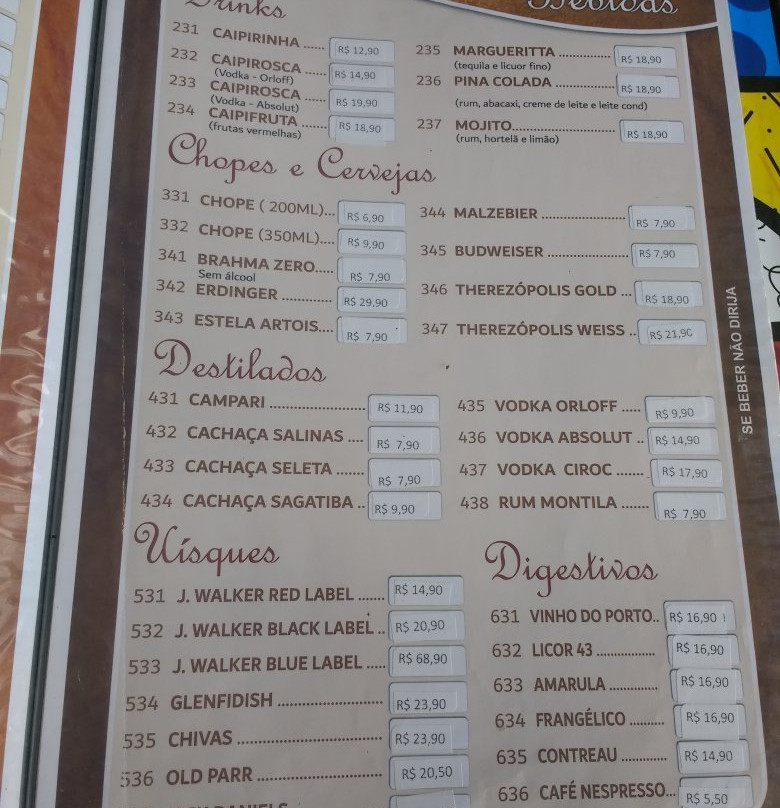 Drinks
Bebidas
231 CAIPIRINHA ..... R$ 12,90
232 CAIPIROSCA .... R$ 14,90
(Vodka - Orloff)
233 CAIPIROSCA .... R$ 19,90
(Vodka - Absolut)
234 CAIPIFRUTA ..... R$ 18,90
(frutas vermelhas)
235 MARGUERITTA ............. R$ 18,90
(tequila e licuor fino)
236 PINA COLADA ............. R$ 18,90
(rum, abacaxi, creme de leite e leite cond)
237 MOJITO.......................... R$ 18,90
(rum, hortelã e limão)
Chopes e Cervejas
331 CHOPE ( 200ML)... R$ 6,90
332 CHOPE (350ML).... R$ 9,90
341 BRAHMA ZERO..... R$ 7,90
Sem álcool
342 ERDINGER ............ R$ 29,90
343 ESTELA ARTOIS.... R$ 7,90
344 MALZEBIER ..................... R$ 7,90
345 BUDWEISER .................... R$ 7,90
346 THEREZÓPOLIS GOLD ... R$ 18,90
347 THEREZÓPOLIS WEISS .. R$ 21,90
Destilados
431 CAMPARI ....................... R$ 11,90
432 CACHAÇA SALINAS .... R$ 7,90
433 CACHAÇA SELETA ....... R$ 7,90
434 CACHAÇA SAGATIBA .. R$ 9,90
435 VODKA ORLOFF ..... R$ 9,90
436 VODKA ABSOLUT .. R$ 14,90
437 VODKA CIROC ....... R$ 17,90
438 RUM MONTILA ....... R$ 7,90
SE BEBER NÃO DIRIJA
Uísques
531 J. WALKER RED LABEL ....... R$ 14,90
532 J. WALKER BLACK LABEL .. R$ 20,90
533 J. WALKER BLUE LABEL ..... R$ 68,90
534 GLENFIDISH ........................ R$ 23,90
535 CHIVAS ................................ R$ 23,90
536 OLD PARR ............................ R$ 20,50
Digestivos
631 VINHO DO PORTO.. R$ 16,90
632 LICOR 43 ................ R$ 16,90
633 AMARULA ............. R$ 16,90
634 FRANGÉLICO ......... R$ 16,90
635 CONTREAU ............. R$ 14,90
636 CAFÉ NESPRESSO... R$ 5,50